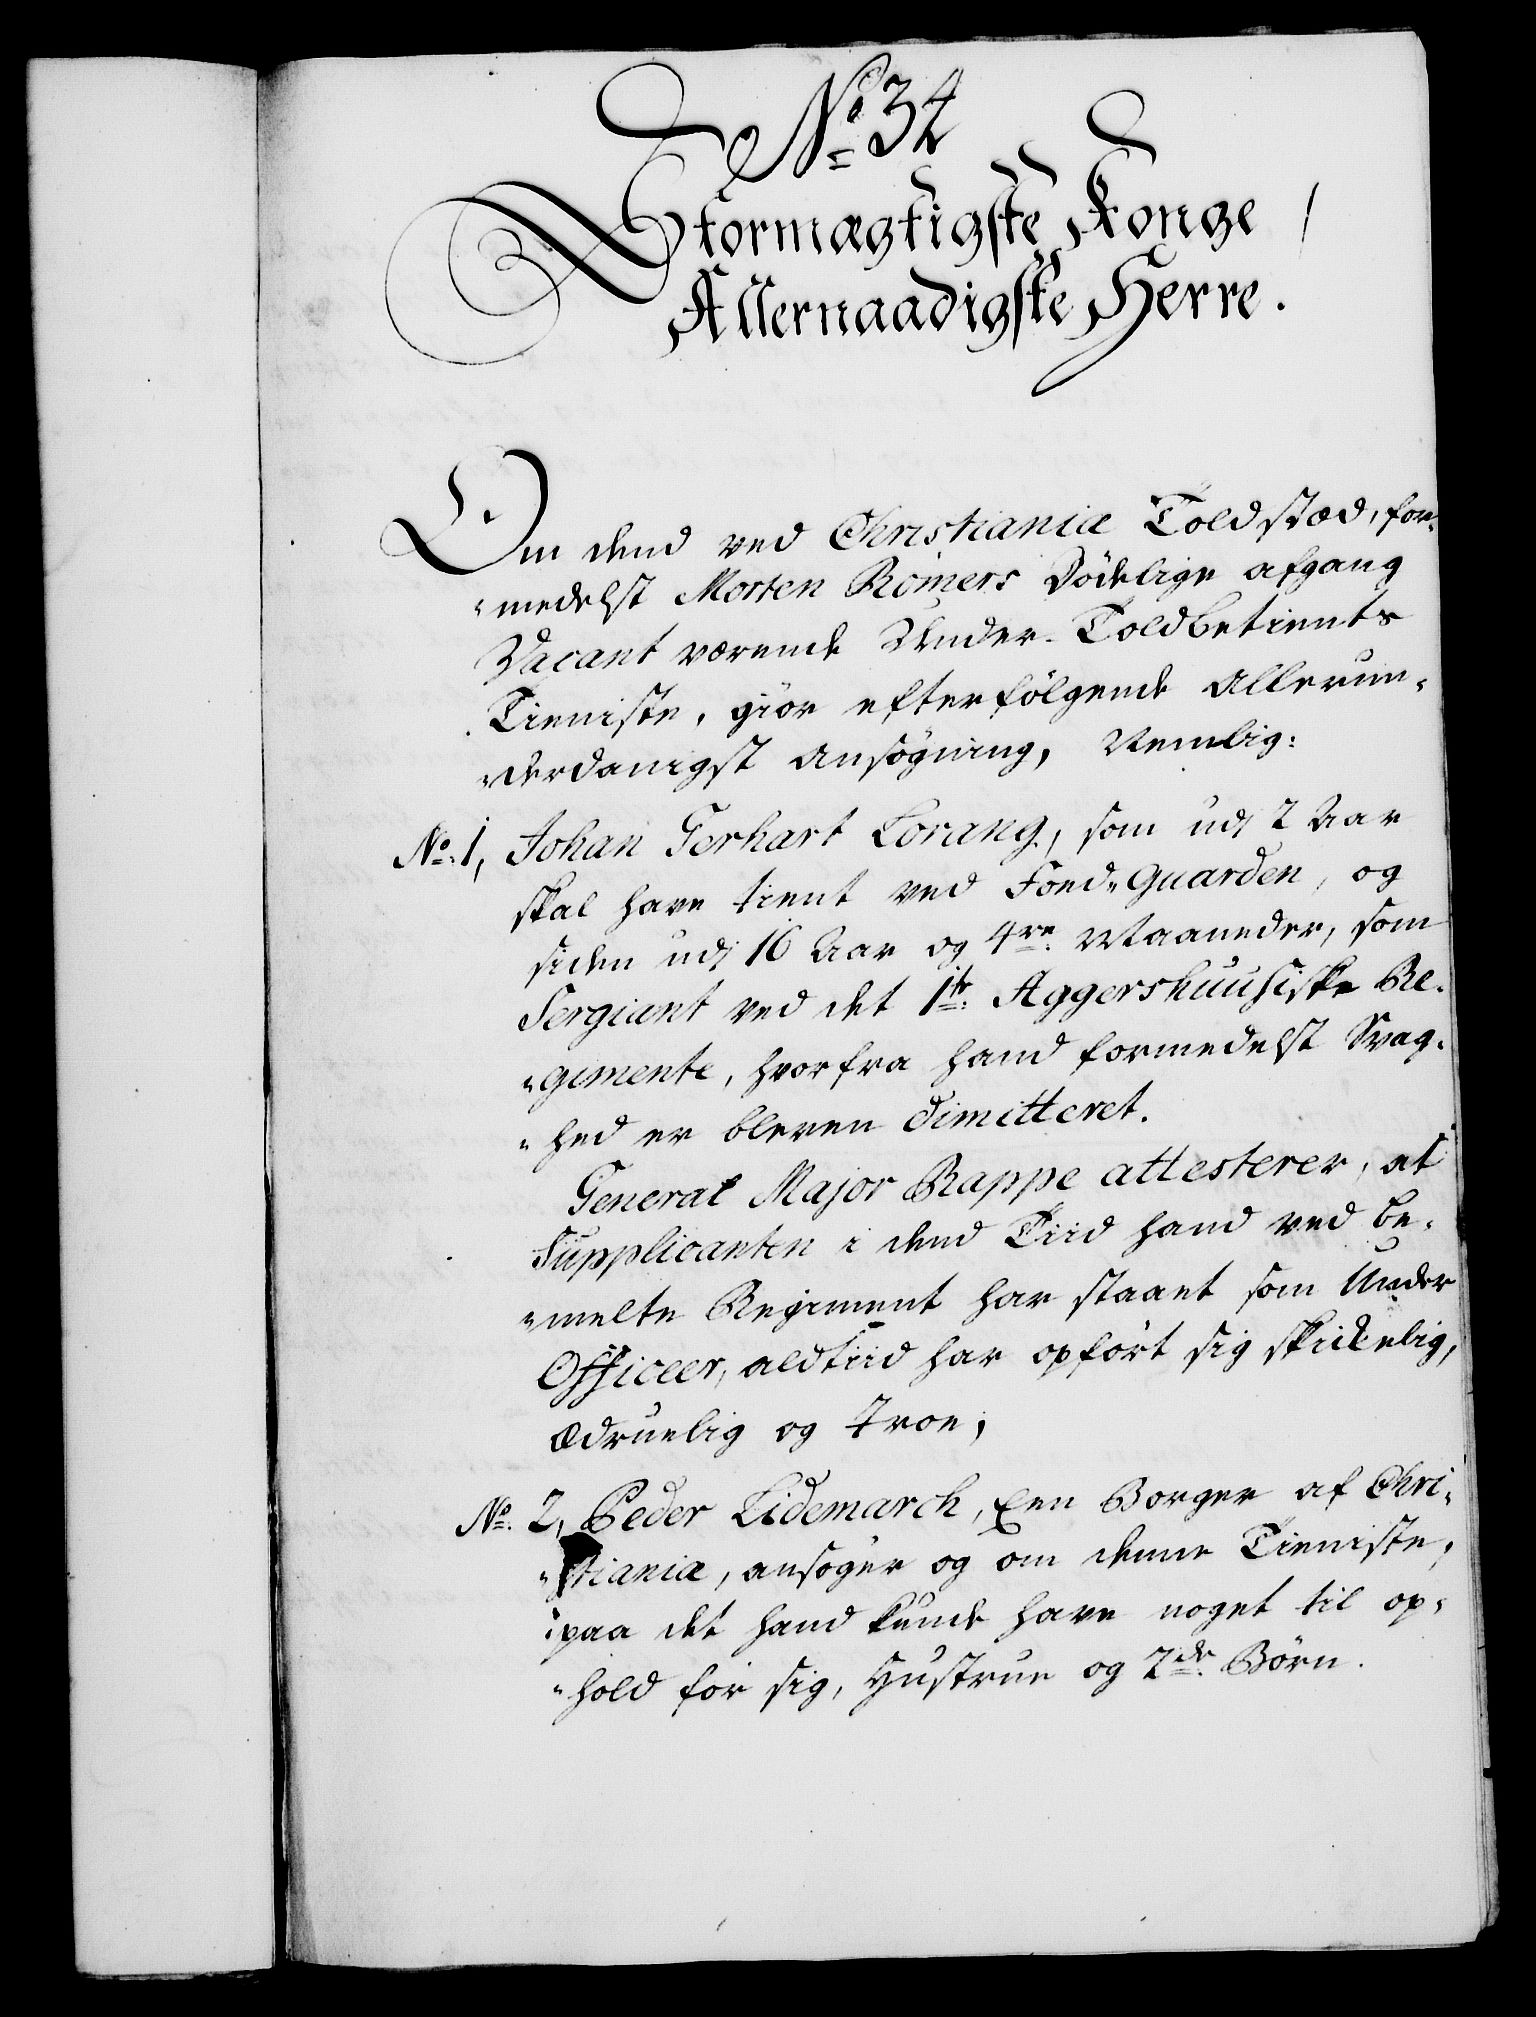 No 34
Stormægtigste Konge
Allernaadigste Herre.
Om dend ved Christianiæ Toldstæd, for-
"medelst Morten Römers Dödelige afgang
Vacant værende Under-Toldbetients
Tieniste, giör efterfölgende Allerun-
"derdanigst ansögning, Nemlig:
No: 1, Johan Gerhart Lorang, som udj 2 Aar
skal have tient ved Foed-Guarden, og
siden udj 16 Aar og 4re Maaneder, som
Sergiant ved det 1te Aggershuusiske Re-
"gimente, hvorfra hand formedelst Svag-
"hed er bleven dimitteret.
General Major Rappe attesterer, at
Supplicanten i dend Tiid hand ved be-
"melte Regiment har staaet som Under
Officeer, aldtiid har opfört sig skikelig,
ædruelig og troe,
No. 2, Peder Lidemarch, Een Borger af Chri-
"stianiæ, ansöger og om denne Tieniste,
paa det hand kunde have noget til op-
"hold for sig, Hustrue og 2de Börn.